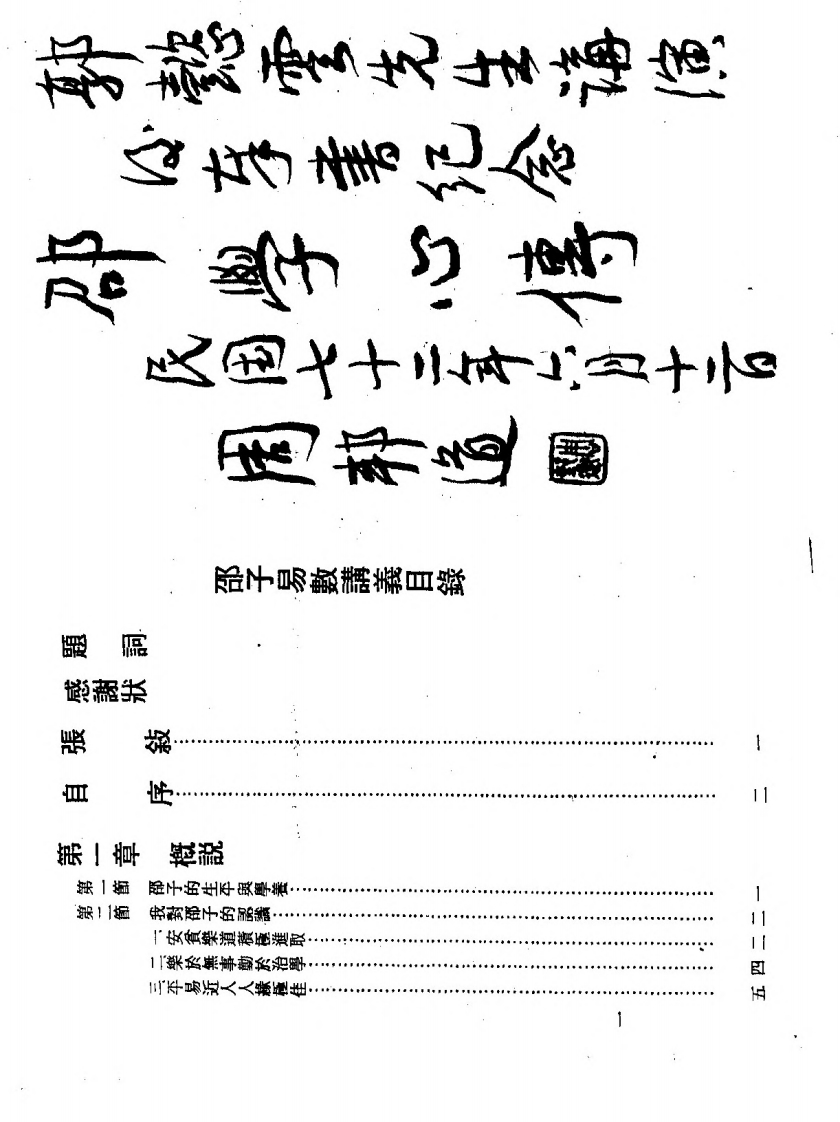 郭懿雲先生講演
書紀念
邵學心傳
民國七十二年六月十二日
周邦道
邵子易數講義目錄
題 詞
感謝狀
張 敍……………………一
自 序……………………二
第一章 概說
第一節 邵子的生平與學養……………………一
第二節 我對邵子的認識……………………二
一、安貧樂道積極進取……………………二
二、樂於無事勤於治學……………………四
三、平易近人人緣極佳……………………五
1